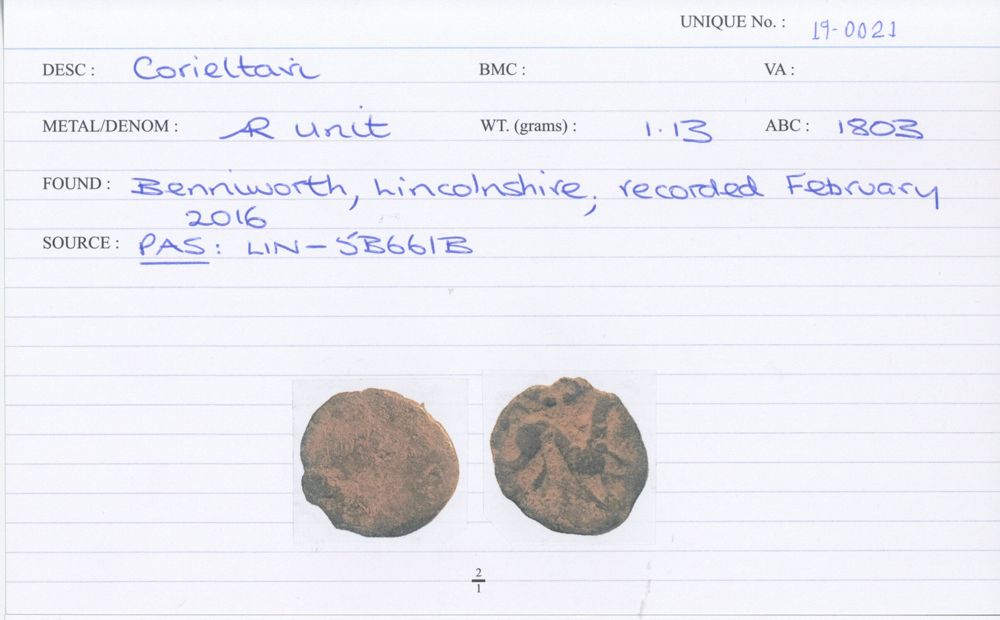 UNIQUE No. : 19-0021
DESC : Corieltavi BMC : VA :
METAL/DENOM : AR unit WT. (grams) : 1.13 ABC : 1803
FOUND : Benniworth, Lincolnshire; recorded February
2016
SOURCE : PAS: LIN-5B661B
2
1